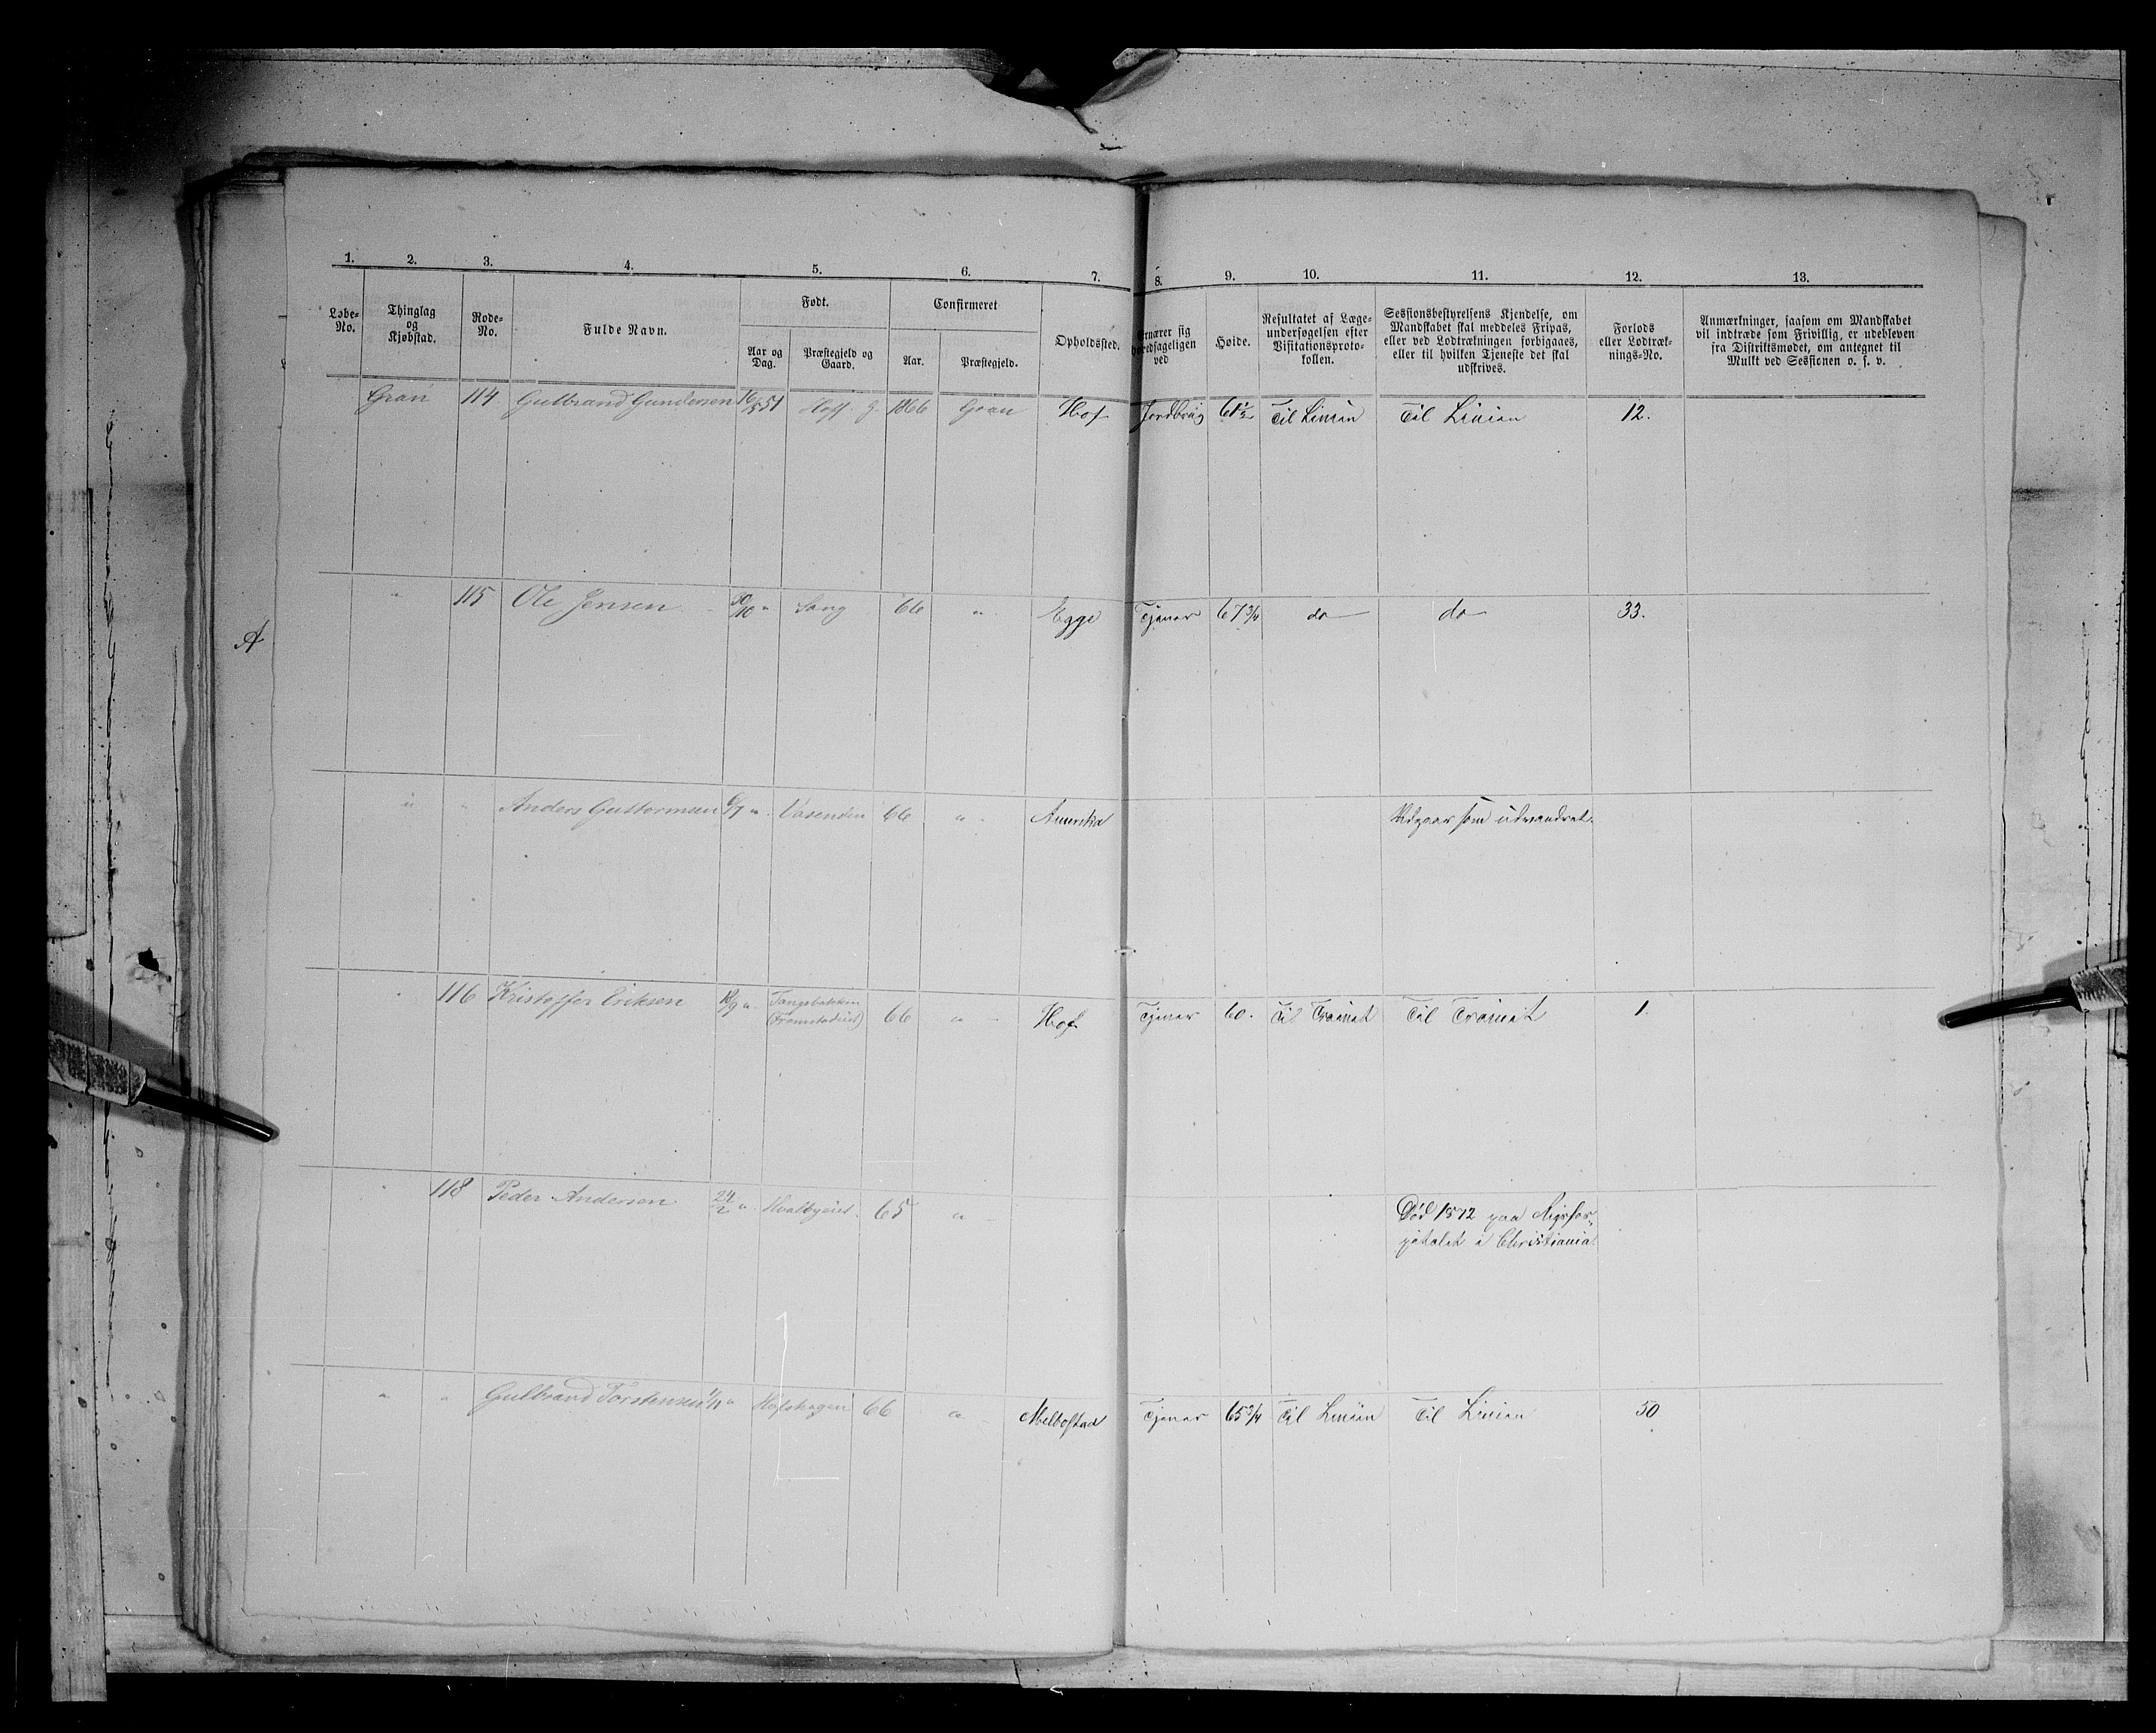 1. 2. 3. 4. 5. 6. 7. 8. 9. 10. 11. 12. 13.
Løbe-No. Thinglag og Kjøbstad. Rode-No. Fulde Navn. Født. Aar og Dag. Præstegjeld og Gaard. Confirmeret Aar. Præstegjeld. Opholdssted. Ernærer sig hovedsageligen ved Høide. Resultatet af Læge-undersøgelsen efter Visitationsproto-kollen. Sessionsbestyrelsens Kjendelse, om Mandskabet skal meddeles Fripas, eller ved Lodtrækningen forbigaaes, eller til hvilken Tjeneste det skal udskrives. Forlods eller Lodtræk-nings-No. Anmærkninger, saasom om Mandskabet vil indtræde som Frivillig, er udebleven fra Distriktsmødet, om antegnet til Mulkt ved Sessionen o. s. v.
Gran 114 Gulbrand Gundersen 16/5 51 Hoff G. 1866 Gran Hof Jordbrug 61 1/2 Til Linien Til Linien 12.
A
" 115 Ole Jensen 30/10 " Sang 66 " Egge Tjener 67 3/4 do do 33.
" " Anders Guttormsen 6/7 " Vasenden 66 " Amerika Udgaar som udvandret.
" 116 Kristoffer Eriksen 18/9 " Tangsbakken
(Framstadeiet) 66 " Hof Tjener 60. Til Trainet Til Trainet 1.
" 118 Peder Andersen 24/2 " Hvalbyeiet 65 " Død 1872 paa Rigshos-
pitalet i Christiania.
" " Gulbrand Torstensen 1/11 " Hofshagen 66 " Melbostad Tjener 65 3/4 Til Linien Til Linien 50